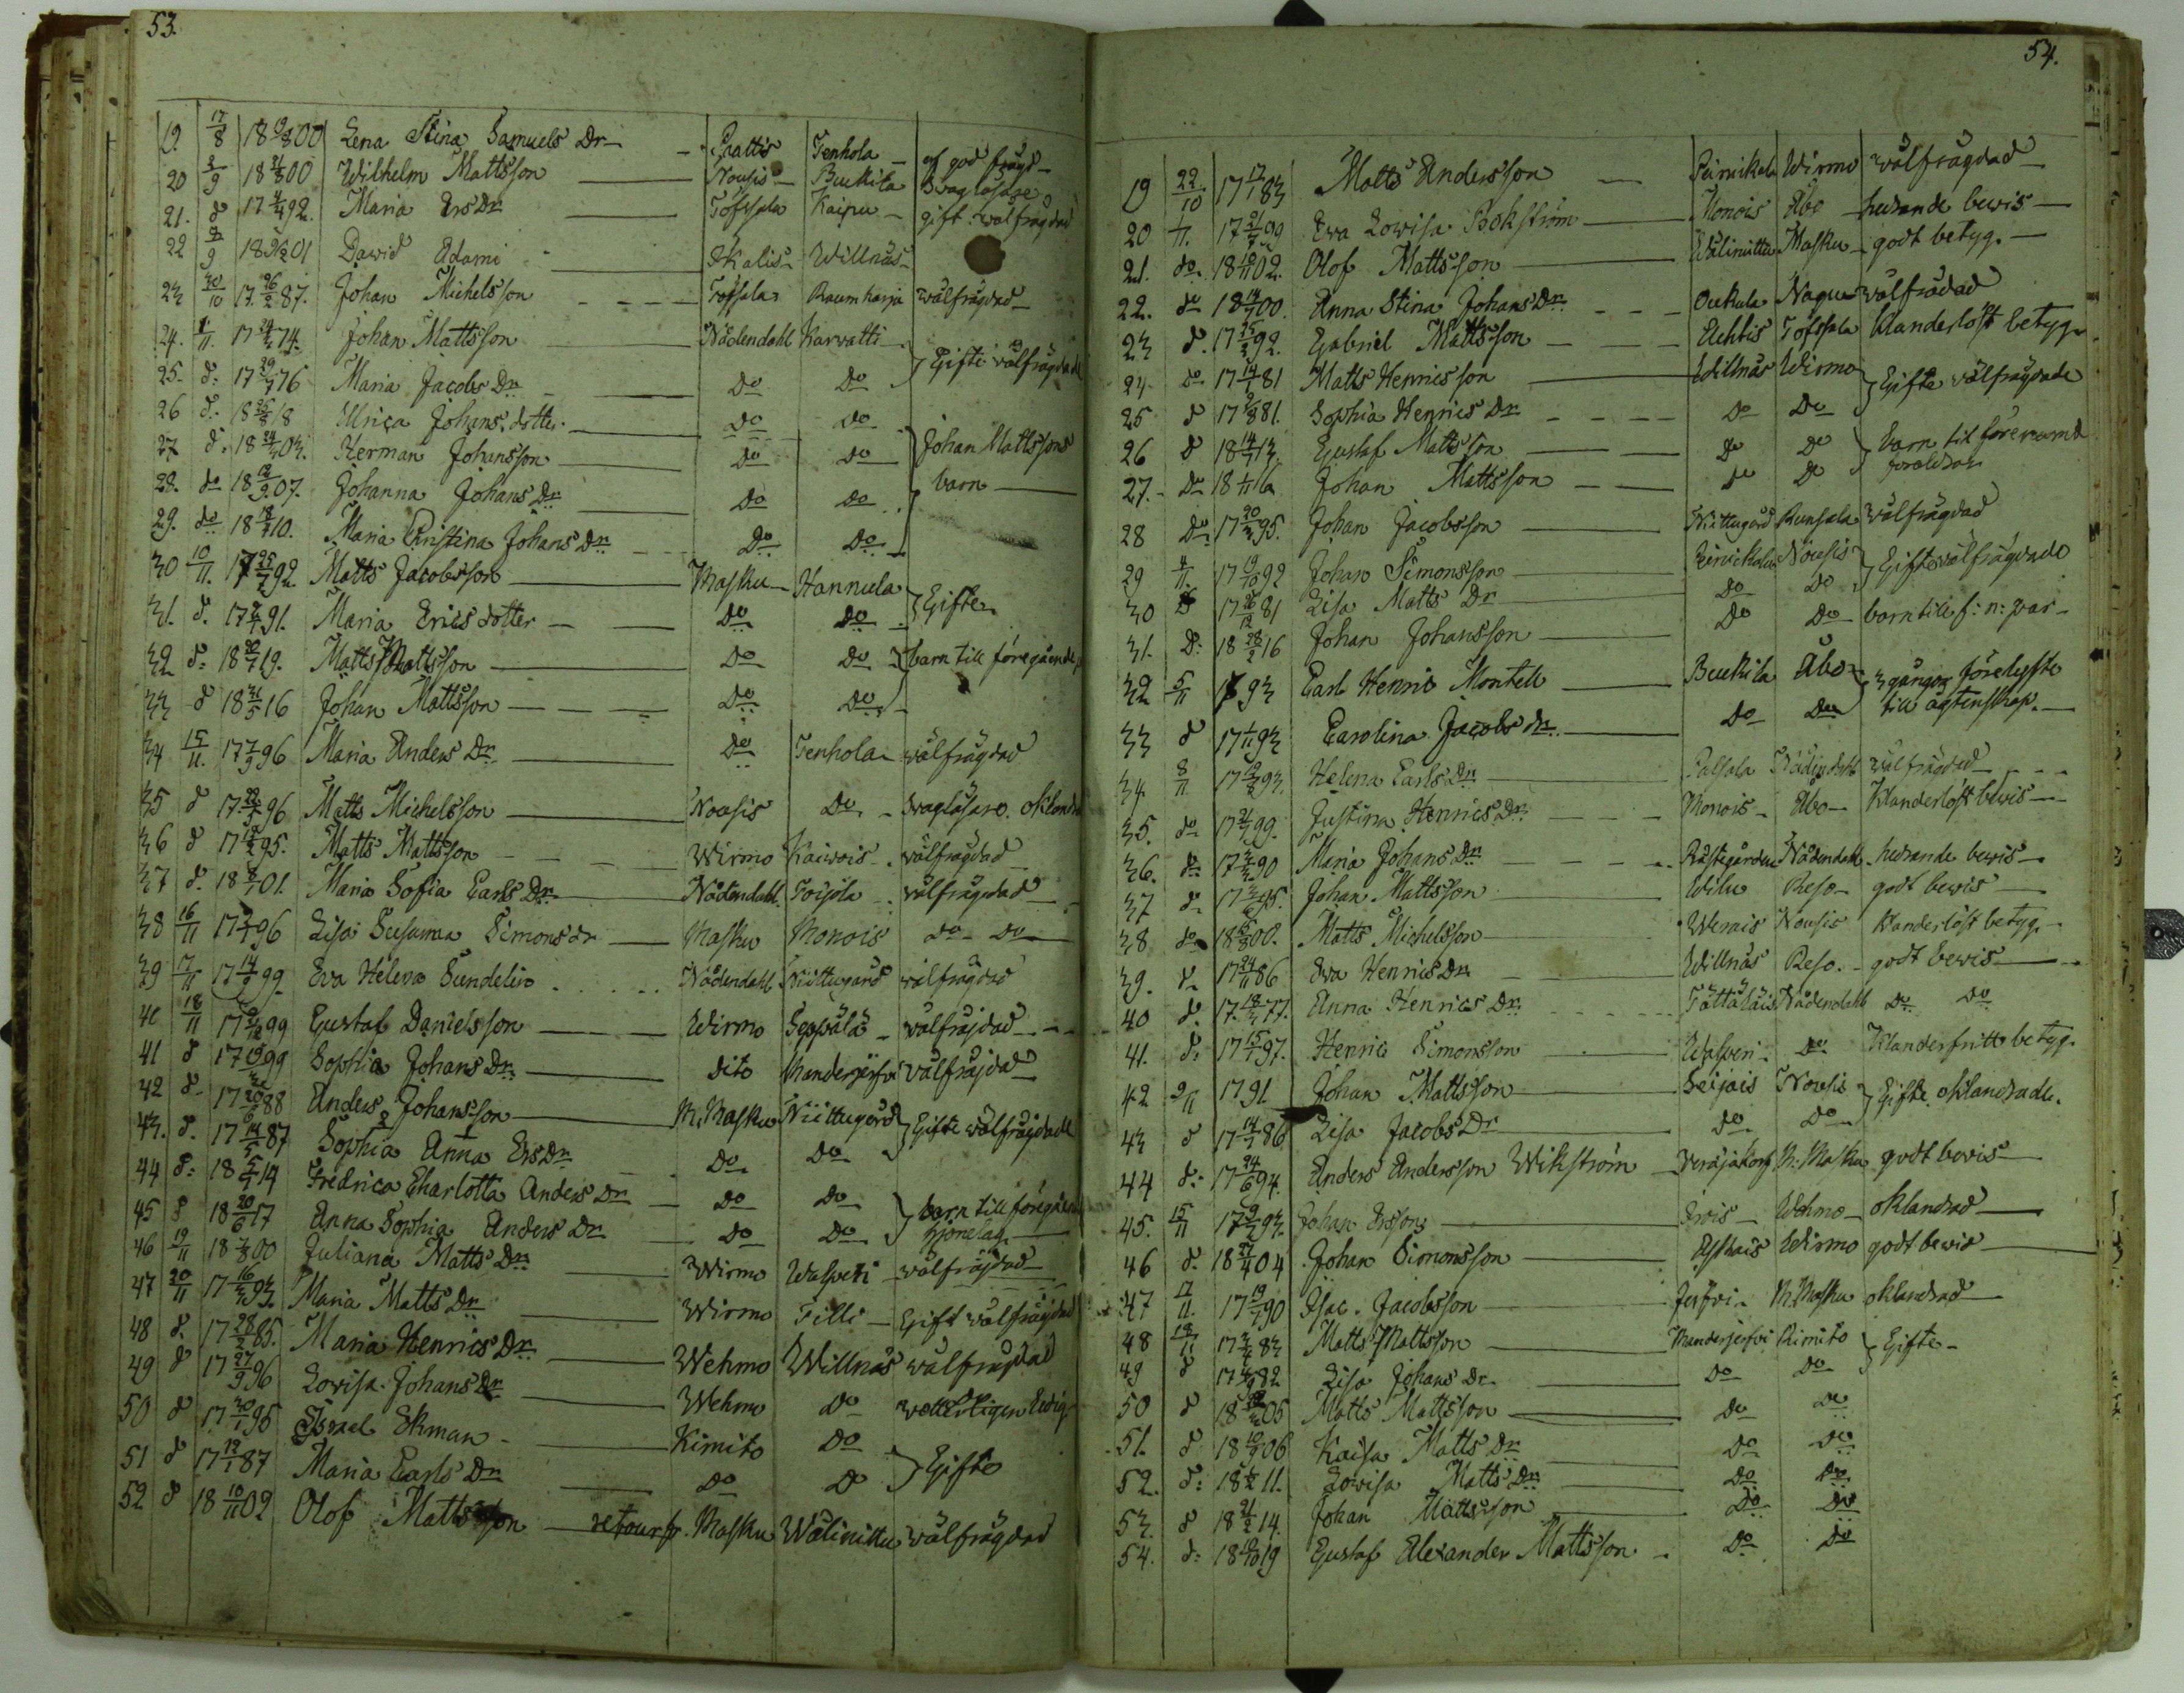 53.
19. 17/8 18 9/8 00 Lena Stina Samuels Dr Paattis Tenhola af god frägd
20 2/9 18 21/8 00 Wilhelm Mattsson Nousis Buckila Swagläsare
21. d 17 92. Maria Ers Dr Tofsala Kaipu gift wälfrägdad
22 9 18 01 Dawid Adami Skalis Willnäs
23 30/10 17 26/2 87. Johan Michelsson Tofsala Raumkarja wälfrägdad
24. 1/11. 17 74. Johan Mattsson Nådendahl Karwatti } Gifte wälfrägdade
25. d: 17 29/7 76 Maria Jacobs Dr Do Do
26 d: 18 18 Ulrica Johans dotter Do Do
27 d: 18 03. Herman Johansson Do Do } Johan Mattssons
28. do 18 07. Johanna Johans Dr Do Do barn
29. do 18 10. Maria Christina Johans Dr Do Do
30 10/11. 17 92. Matts Jacobsson Masku Hannula } Gifte
31. d. 17 91. Maria Erics dotter Do Do
32 d: 18 19. Matts Mattsson Do Do } barn till föregående
33 d 18 31/5 16 Johan Mattsson Do Do
34 15/11. 17 96 Maria Anders Dr Do Tenhola wälfrägdad
35 d 17 96 Matts Michelsson Nousis Do swagläsare. oklandrad
36 d 17 95. Matts Mattsson Wirmo Kaiwois wälfrägdad
37 d. 18 01. Maria Sofia Carls Dr Nådendahl. Toijola wälfrägdad
38 16/11 17 96 Lisa Susanna Simons dr Masku Monois Do Do
39 17/11 17 14/9 99 Eva Helena Sundelin Nådendahl Niittugård wälfrägdad
40 18/11 17 99 Gustaf Danielsson Wirmo Seppälä wälfräjdad
41 d 17 99 Sophia Johans Dr dito Manderjerfvi wälfräjdad
42 d 17 88 Anders Johansson M. Masku Niittugård } Gifte wälfräjdade
43. d. 17 14 87 Sophia Anna Ers Dr Do Do
44 d: 18 14 Fredrica Charlotta Anders Dr Do Do } barn till föregående
45 d 18 20/6 17 Anna Sophia Anders Dr Do Do hjonelag.
46 19/11 18 00 Juliana Matts Dr Wirmo Walperi wälfräjdad
47 20/11 17 16 93. Maria Matts Dr Wirmo Tilli Gift wälfrägdad
48 d. 17 28/2 85. Maria Henrics Dr Wehmo Willnäs wälfräjdad
49 d 17 27/9 96 Lovisa Johans Dr Wehmo Do ledig
50 d 17 30/1 95 Israel Ekman Kimito Do } Gifte
51 d 17 12/1 87 Maria Carls Dr Do Do
52 d 18 10/11 02 Olof Mattsson retour fr. Masku Wälinittu wälfrägdad
54.
19 22/10 17 83 Matts Andersson Wirmo wälfrägdad
20 17 99 Eva Lowisa Bokström Monois Åbo hedrande bewis
21. do. 18 02. Olof Mattsson Wälinittu Masku godt betyg.
22. do 18 14 00. Anna Stina Johans Dr Ouckula Nagu wälfrädad
23 d. 17 25 92. Gabriel Mattsson Achtis Tofsala Klanderlöst betyg
24 do. 17 14 81 Matts Henricsson Willnäs Wirmo } Gifte wälfrägdade
25 d 17 81. Sophia Henrics Dr Do Do
26 d 18 14 13. Gustaf Mattsson Do Do } barn til förenämd
27. Do 18 16 Johan Mattsson Do Do föräldrar
28 Do 17 20 95. Johan Jacobsson Niittugård Runsala wälfrägdad
29 17 19/10 92 Johan Simonsson Nousis } Gifte wälfrägdade
30 17 26/12 81 Lisa Matts Dr Do Do
31. D: 18 28/2 16 Johan Johansson Do Do barn till f: n: par
32 5/11 93 Carl Henric Montell Buckila Åbo } 3 gånger förelyste
33 d 17 1/11 93 Carolina Jacobs dr. Do Do till ägtenskap.
34. 8/11 17 93. Helena Carls Dr Palsala Nådendahl wälfrägdad
35. do 17 99. Justina Henrics Dr Monois Åbo Klanderlöst bewis
36. do 17 90 Maria Johans Dr Nådendahl hedrande bewis
37 d 17 95. Johan Mattsson Wilu Reso godt bewis
38 do 18 00. Matts Michelsson Werais Nousis Klanderlöst betyg.
39. d 17 24/11 86 Eva Henrics Dr Willnäs Reso. godt bewis
40 d. 17 18 77. Anna Henrics Dr Nådendahl Do Do
41. d: 17 15 97. Henric Simonsson Walperi Do Klanderfritt betyg.
42 11 1791. Johan Mattsson Seijais Nousis } Gifte. oklandrade.
43 d 17 14 86 Lisa Jacobs Dr Do Do
44 d: 17 24/6 94. Anders Andersson Wikström M. Masku godt bewis
45. 15/11 17 93. Johan Ersson Wehmo oklandrad
46 d. 18 27/4 04 Johan Simonsson Wirmo godt bewis
47 17/11. 17 19 90 Isac Jacobsson M. Masku oklandrad
48 18/11 17 83 Matts Mattsson Manderjerfvi Kimito } Gifte
49 d 17 82 Lisa Johans Dr Do Do
50 d 18 05 Matts Mattsson Do Do
51. d. 18 10/9 06 Kaisa Matts Dr Do Do
52. d: 18 11. Lovisa Matts Dr Do Do
53. d 18 21/2 14. Johan Mattsson Do Do
54. d: 18 19 Gustaf Alexander Mattsson Do Do